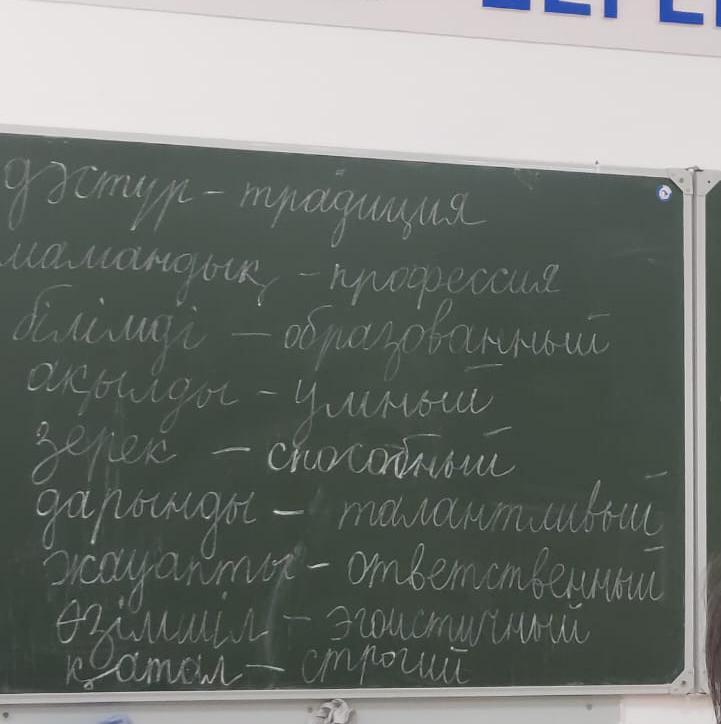 дәстүр - традиция
мамандық - профессия
білімді - образованный
ақылды - умный
зерек - способный
дарынды - талантливый
жауапты - ответственный
өзімшіл - эгоистичный
қатал - строгий